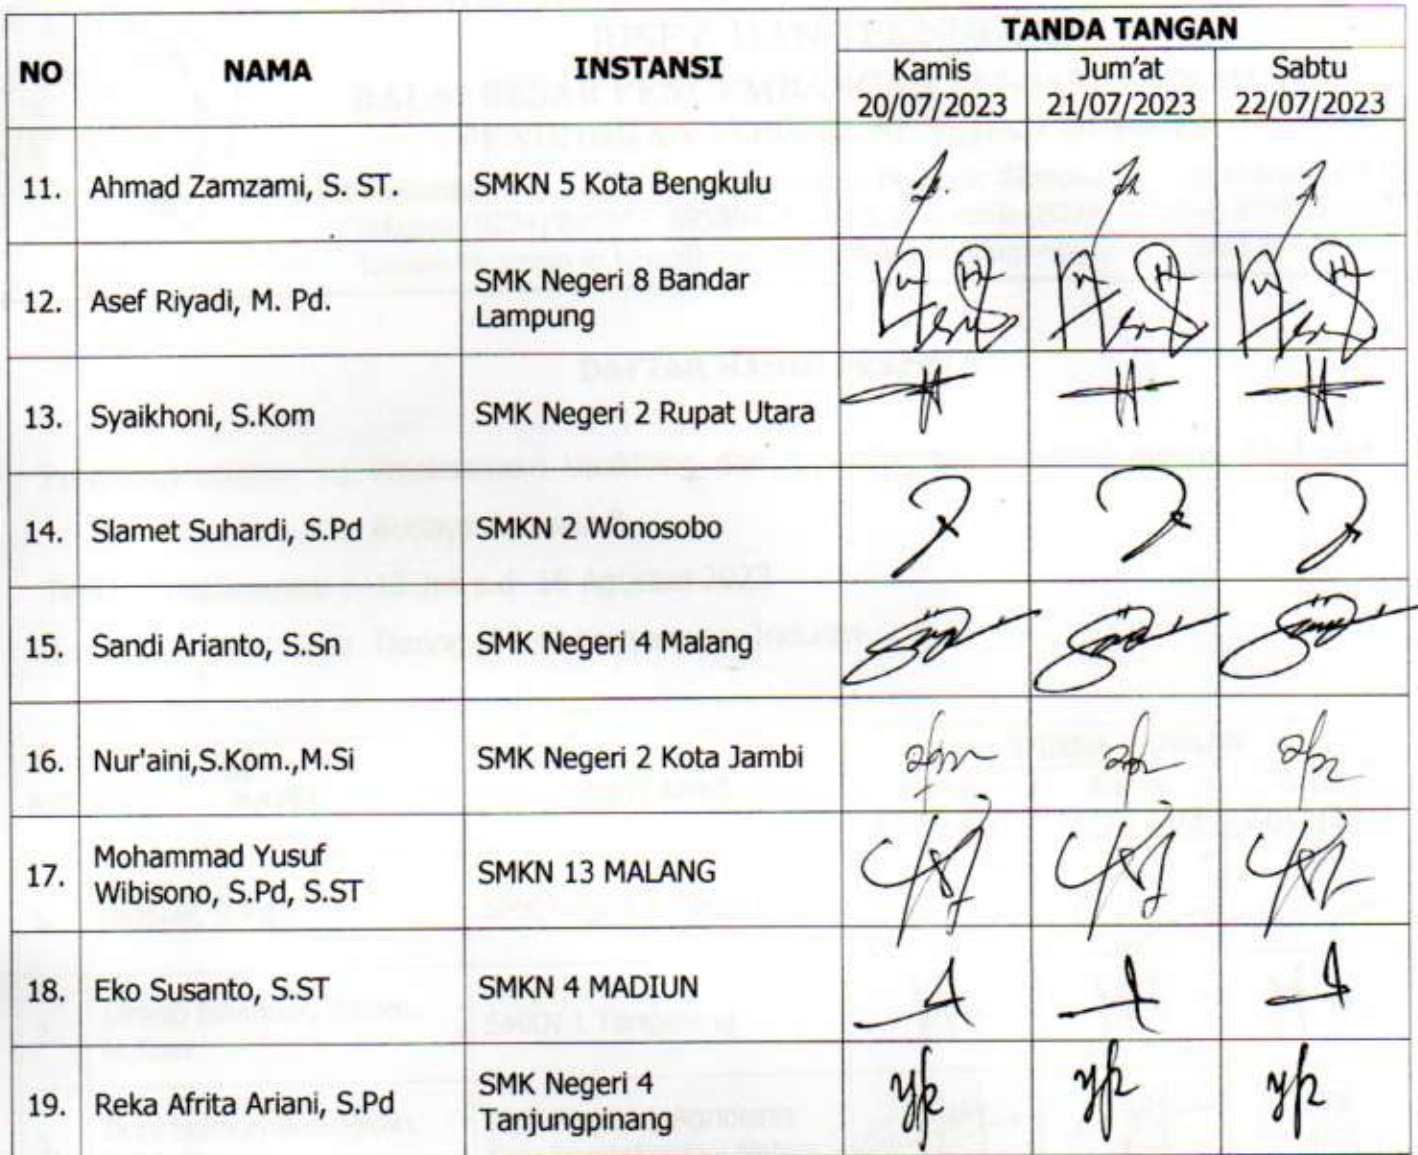 TANDA TANGAN
NO NAMA INSTANSI Kamis Jum'at Sabtu
20/07/2023 21/07/2023 22/07/2023
11. Ahmad Zamzami, S. ST. SMKN 5 Kota Bengkulu
12. Asef Riyadi, M. Pd. SMK Negeri 8 Bandar
Lampung
13. Syaikhoni, S.Kom SMK Negeri 2 Rupat Utara
14. Slamet Suhardi, S.Pd SMKN 2 Wonosobo
15. Sandi Arianto, S.Sn SMK Negeri 4 Malang
16. Nur'aini,S.Kom.,M.Si SMK Negeri 2 Kota Jambi
17. Mohammad Yusuf
Wibisono, S.Pd, S.ST SMKN 13 MALANG
18. Eko Susanto, S.ST SMKN 4 MADIUN
19. Reka Afrita Ariani, S.Pd SMK Negeri 4
Tanjungpinang